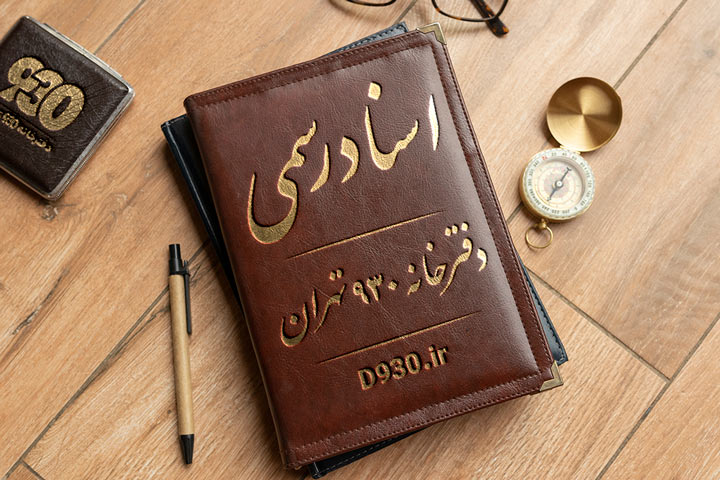 اسناد رسمی
دفترخانه ۹۳۰ تهران
D930.ir
930